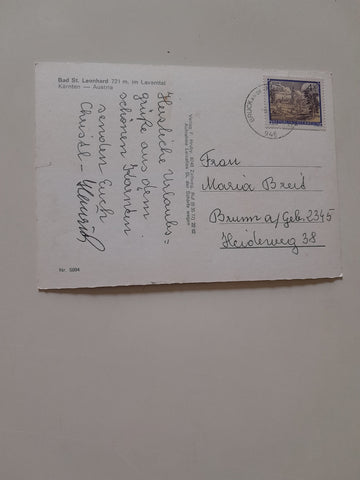 Bad St. Leonhard 721 m, im Lavanttal
Kärnten — Austria
Herzliche Urlaubs=
grüße aus dem
schönen Kärnten
senden Euch
Christl -
Nr. 5994
Frau
Maria Breit
Brunn a/Geb. 2345
Heideweg 38